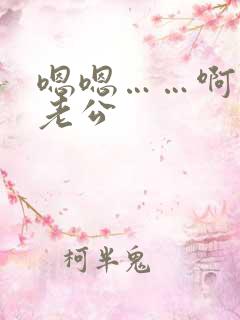 嗯嗯……啊
老公
柯半鬼